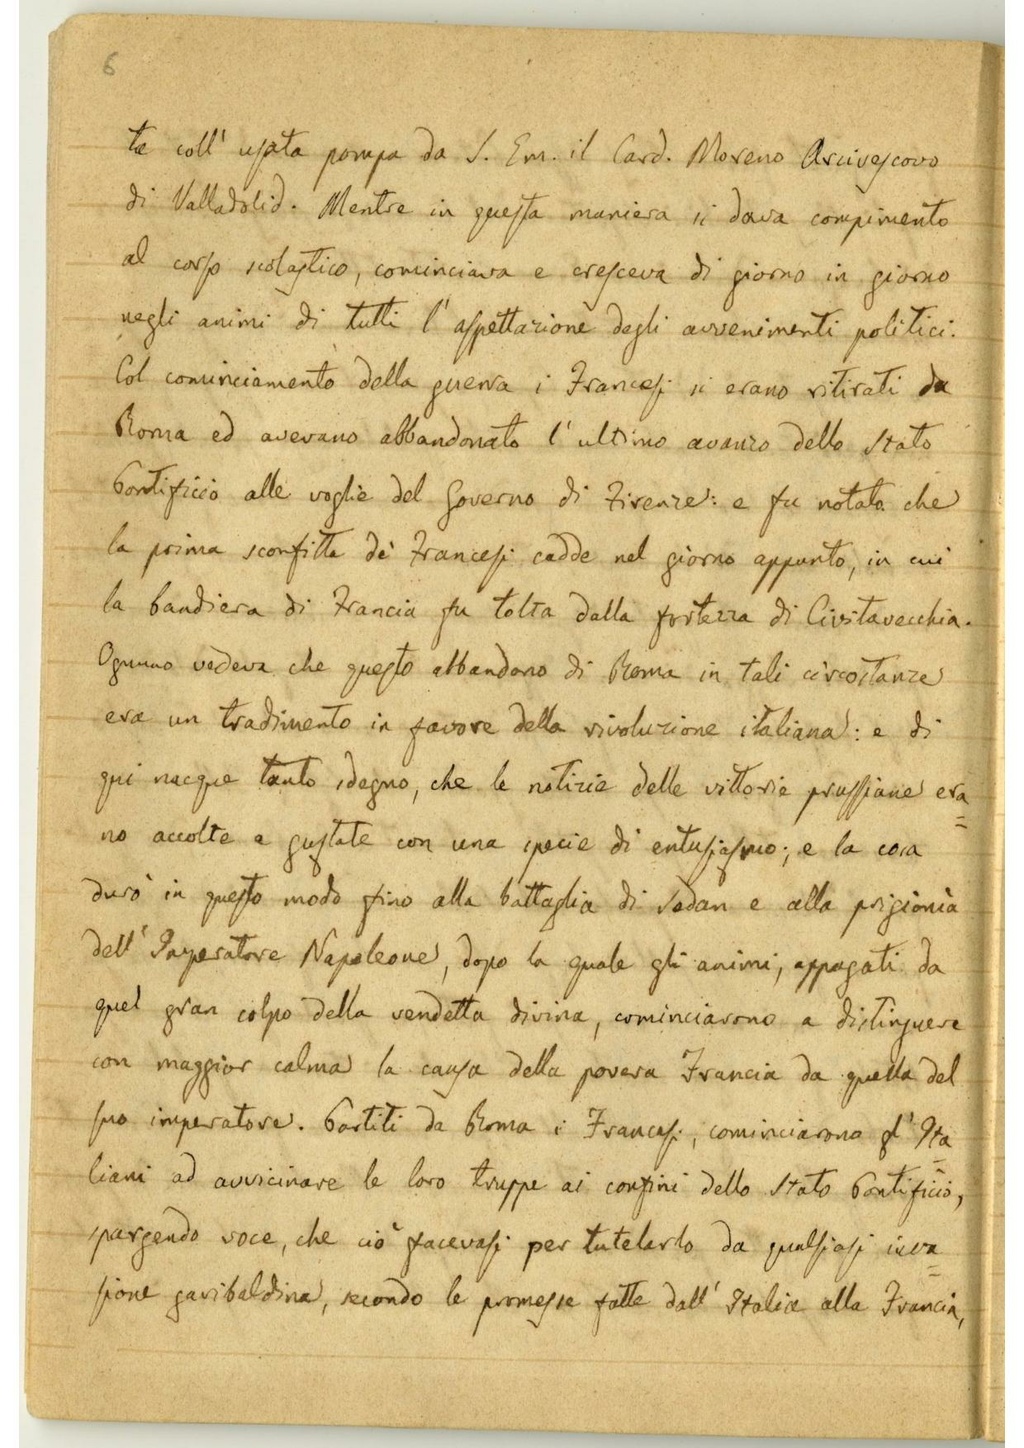 6
te coll' usata pompa da S. Em. il Card. Moreno Arcivescovo
di Valladolid. Mentre in questa maniera si dava compimento
al corso scolastico, cominciava e cresceva di giorno in giorno
negli animi di tutti l'aspettazione degli avvenimenti politici.
Col cominciamento della guerra i Francesi si erano ritirati da
Roma ed avevano abbandonato l'ultimo avanzo dello Stato
Pontificio alle voglie del Governo di Firenze: e fu notato che
la prima sconfitta de' Francesi cadde nel giorno appunto, in cui
la bandiera di Francia fu tolta dalla fortezza di Civitavecchia.
Ognuno vedeva che questo abbandono di Roma in tali circostanze
era un tradimento in favore della rivoluzione italiana: e di
qui nacque tanto sdegno, che le notizie delle vittorie prussiane era=
no accolte e gustate con una specie di entusiasmo; e la cosa
durò in questo modo fino alla battaglia di Sedan e alla prigionia
dell'Imperatore Napoleone, dopo la quale gli animi, appagati da
quel gran colpo della vendetta divina, cominciarono a distinguere
con maggior calma la causa della povera Francia da quella del
suo imperatore. Partiti da Roma i Francesi, cominciarono gl'Ita=
liani ad avvicinare le loro truppe ai confini dello Stato Pontificio,
spargendo voce, che ciò facevasi per tutelarlo da qualsiasi inva=
sione garibaldina, secondo le promesse fatte dall'Italia alla Francia,